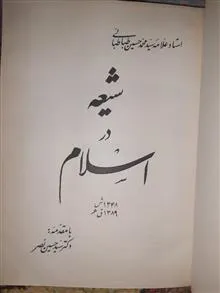 استاد علامه سید محمد حسین طباطبائی
شیعه
در
اسلام
۱۳۴۸ ش
۱۳۸۹ ق
با مقدمه:
دکتر سید حسین نصر